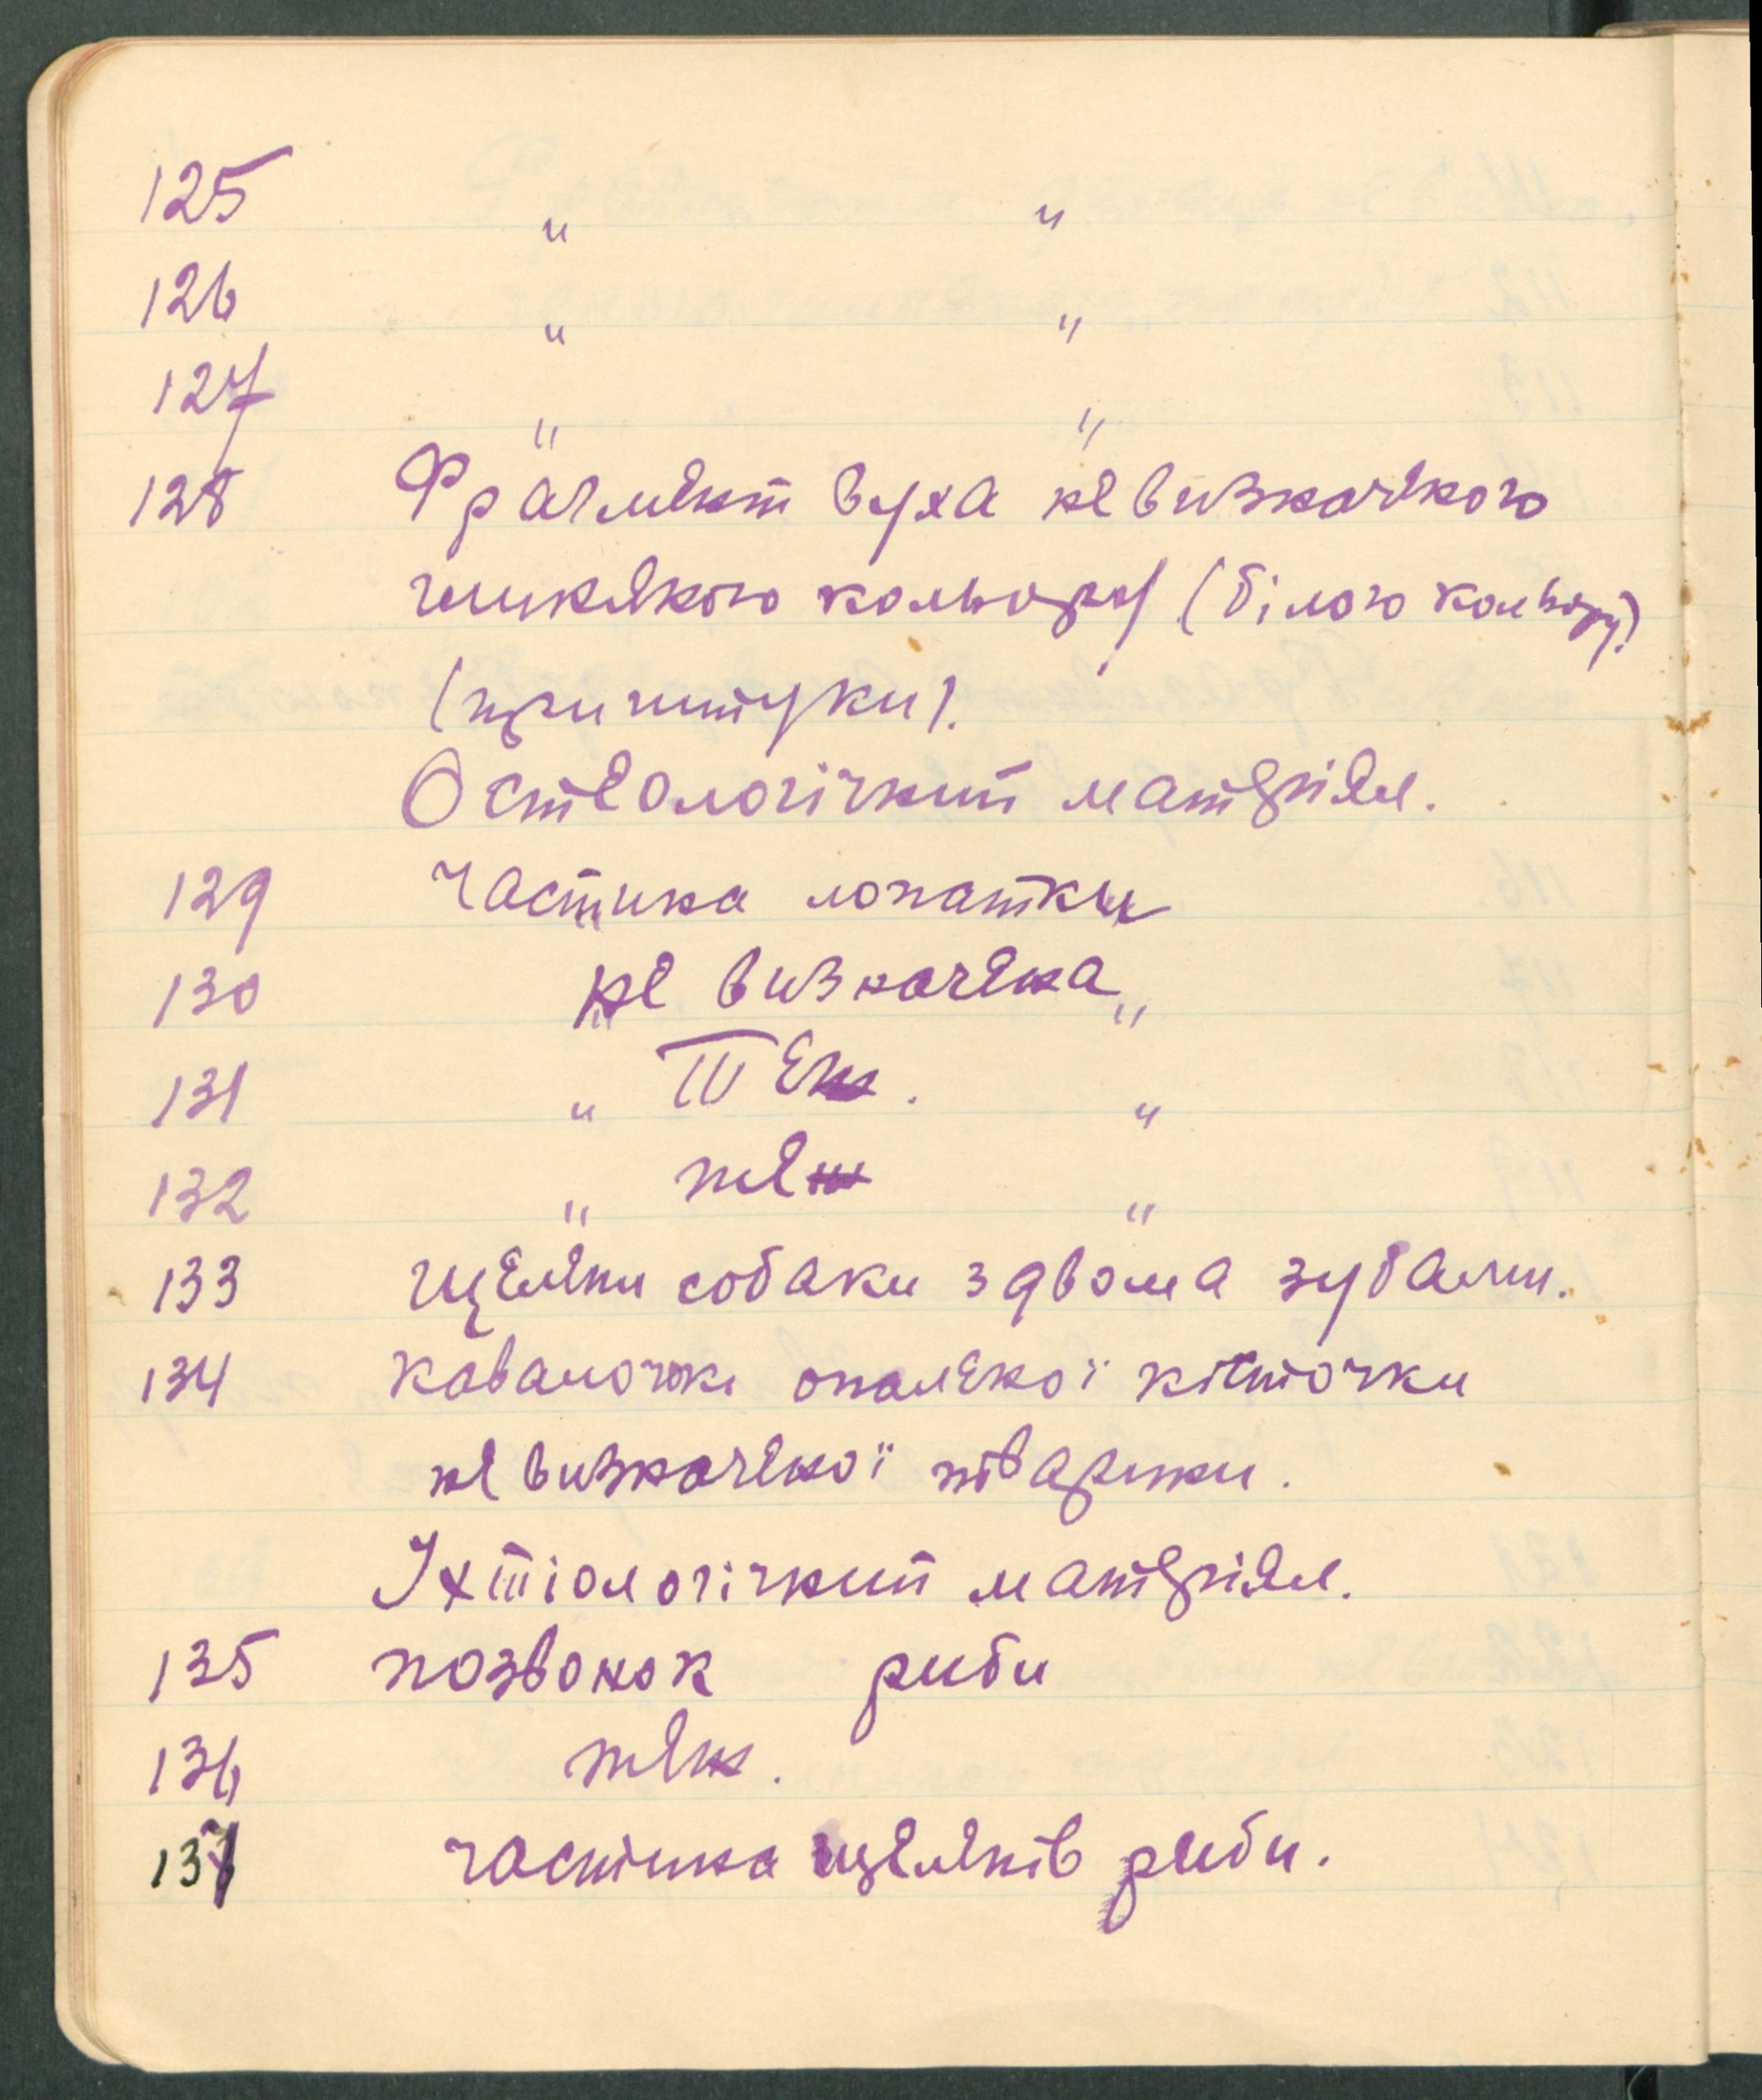 125 " "
126 " "
127 " "
128 Фрагмент вуха невизначеного
глиняного кольору (білого кольору)
(при штуки).
Остеологічний матеріял.
129 частина лопатки
130 " не визначена "
131 " теж. "
132 " теж "
133 щелепи собаки з двома зубами.
134 кавалочок опаленої кісточки
не визначеної тварини.
Іхтіологічний матеріял.
135 позвонок риби
136 теж.
137 частина щелепів риби.